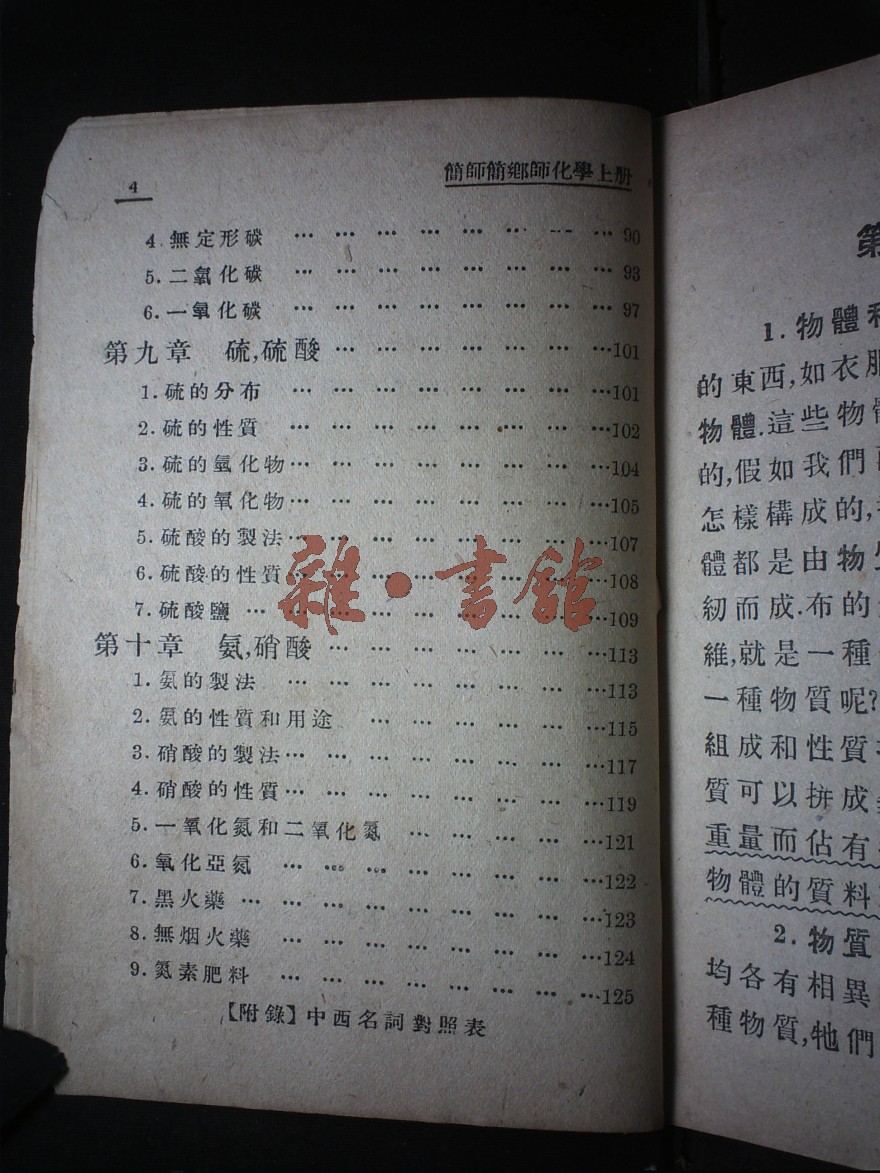 4
簡師簡鄉師化學上册
4.無定形碳 … … … … … … … … … 90
5.二氧化碳 … … … … … … … … … 93
6.一氧化碳 … … … … … … … … … 97
第九章 硫,硫酸 … … … … … … … …101
1.硫的分布 … … … … … … … … …101
2.硫的性質 … … … … … … … … …102
3.硫的氫化物… … … … … … … … …104
4.硫的氧化物… … … … … … … … …105
5.硫酸的製法… … … … … … … … …107
6.硫酸的性質… … … … … … … … …108
7.硫酸鹽 … … … … … … … … … …109
第十章 氨,硝酸 … … … … … … … …113
1.氨的製法 … … … … … … … … …113
2.氨的性質和用途 … … … … … … …115
3.硝酸的製法… … … … … … … … …117
4.硝酸的性質… … … … … … … … …119
5.一氧化氮和二氧化氮 … … … … … …121
6.氧化亞氮 … … … … … … … … …122
7.黑火藥… … … … … … … … … …123
8.無烟火藥 … … … … … … … … …124
9.氮素肥料 … … … … … … … … …125
【附錄】中西名詞對照表
雜·書館
第
1.物體和
的東西,如衣服
物體.這些物體
的,假如我們
怎樣構成的,
體都是由物質
紉而成.布的
維,就是一種
一種物質呢?
組成和性質
質可以拼成
重量而佔有
物體的質料
2.物質
均各有相異
種物質,牠們